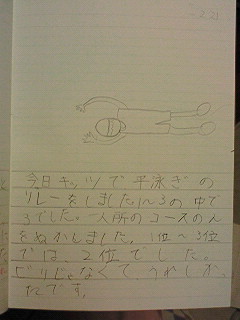 2.21
今日キッツで平泳ぎの
リレーをしました1〜3の中で
3でした。一人所のコースの人
をぬかしました。1位〜3位
では、2位でした。
ビリじゃなくてうれしか
たです。